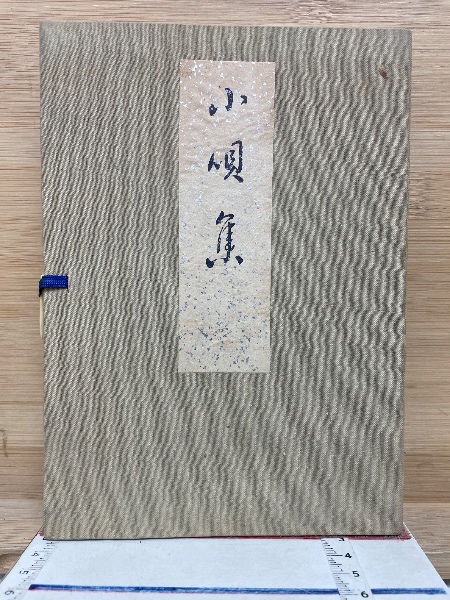 小唄集
3
4
5
6